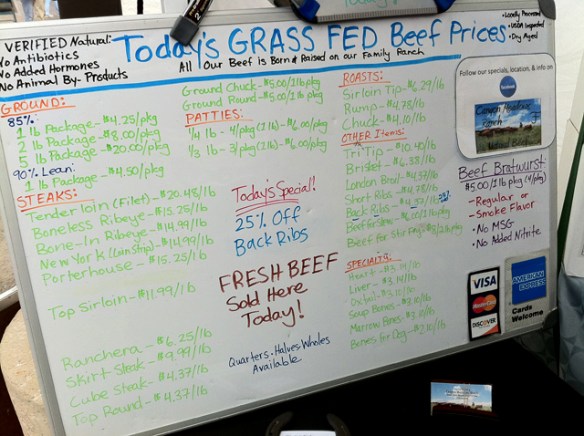 Today's GRASS FED Beef Prices
All Our Beef is Born & Raised on our Family Ranch
VERIFIED Natural:
No Antibiotics
No Added Hormones
No Animal By-Products
• Locally Processed
• USDA Inspected
• Dry Aged
GROUND:
85%:
1 lb Package - $4.25/pkg
2 lb Package - $8.00/pkg
5 lb Package - $20.00/pkg
90% Lean:
1 lb Package - $4.50/pkg
STEAKS:
Tenderloin (Filet) - $20.45/lb
Boneless Ribeye - $15.25/lb
Bone-In Ribeye - $14.99/lb
New York (Loin Strip) - $14.99/lb
Porterhouse - $15.25/lb
Top Sirloin - $11.99/lb
Ranchera - $6.25/lb
Skirt Steak - $9.99/lb
Cube Steak - $4.37/lb
Top Round - $4.37/lb
Ground Chuck - $5.00/1lb pkg
Ground Round - $5.00/1lb pkg
PATTIES:
1/4 lb - 4/pkg (1 lb) - $6.00/pkg
1/3 lb - 3/pkg (1lb) - $6.00/pkg
Today's Special!
25% Off
Back Ribs
FRESH BEEF
Sold Here
Today!
Quarters - Halves - Wholes
Available
ROASTS:
Sirloin Tip - $6.29/lb
Rump - $4.78/lb
Chuck - $4.10/lb
OTHER Items:
Tri Tip - $10.40/lb
Brisket - $6.38/lb
London Broil - $4.57/lb
Short Ribs - $4.28/lb
Back Ribs
Beef for Stew - $6.00/1lb pkg
Beef for Stir Fry
SPECIALTY:
Heart - $3.14/lb
Liver - $3.14/lb
Oxtail
Soup Bones
Marrow Bones
Bones for Dog - $2.10/lb
Follow our specials, location, & info on
facebook
Ranch
Natural Beef
Beef Bratwurst
$5.00/1lb pkg (4/pkg)
- Regular or
- Smoke Flavor
• No MSG
• No Added Nitrite
VISA
MasterCard
DISCOVER
AMERICAN EXPRESS
Cards
Welcome